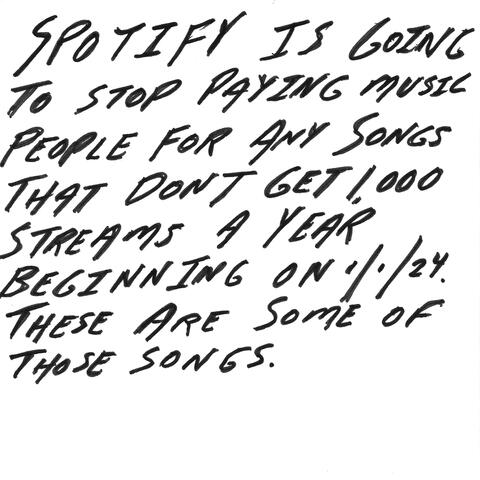 SPOTIFY IS GOING
TO STOP PAYING MUSIC
PEOPLE FOR ANY SONGS
THAT DON'T GET 1,000
STREAMS A YEAR
BEGINNING ON 1/1/24.
THESE ARE SOME OF
THOSE SONGS.